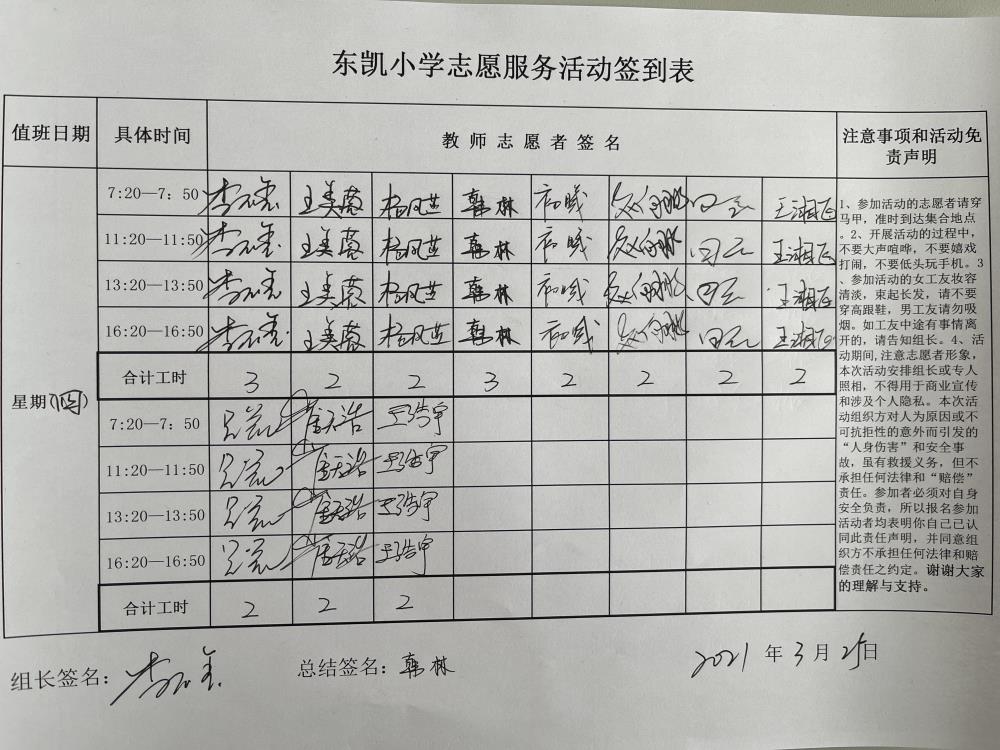 东凯小学志愿服务活动签到表
值班日期 具体时间 教师志愿者签名 注意事项和活动免责声明
7:20—7:50 王美 韩林 王湘
11:20—11:50 王美 韩林 王湘
13:20—13:50 王美 韩林 王湘
16:20—16:50 王美 韩林 王湘
合计工时 3 2 2 3 2 2 2 2
星期(四)
7:20—7:50 浩 浩宇
11:20—11:50 浩 浩宇
13:20—13:50 浩 浩宇
16:20—16:50 浩 浩宇
合计工时 2 2 2
1、参加活动的志愿者请穿
马甲，准时到达集合地点
。2、开展活动的过程中，
不要大声喧哗，不要嬉戏
打闹，不要低头玩手机。3
、参加活动的女工友妆容
清淡，束起长发，请不要
穿高跟鞋，男工友请勿吸
烟。如工友中途有事情离
开的，请告知组长。4、活
动期间,注意志愿者形象，
本次活动安排组长或专人
照相，不得用于商业宣传
和涉及个人隐私。本次活
动组织方对人为原因或不
可抗拒性的意外而引发的
“人身伤害”和安全事
故，虽有救援义务，但不
承担任何法律和“赔偿”
责任。参加者必须对自身
安全负责，所以报名参加
活动者均表明你自己己认
同此责任声明，并同意组
织方不承担任何法律和赔
偿责任之约定。谢谢大家
的理解与支持。
组长签名： 总结签名：韩林 2021年3月25日